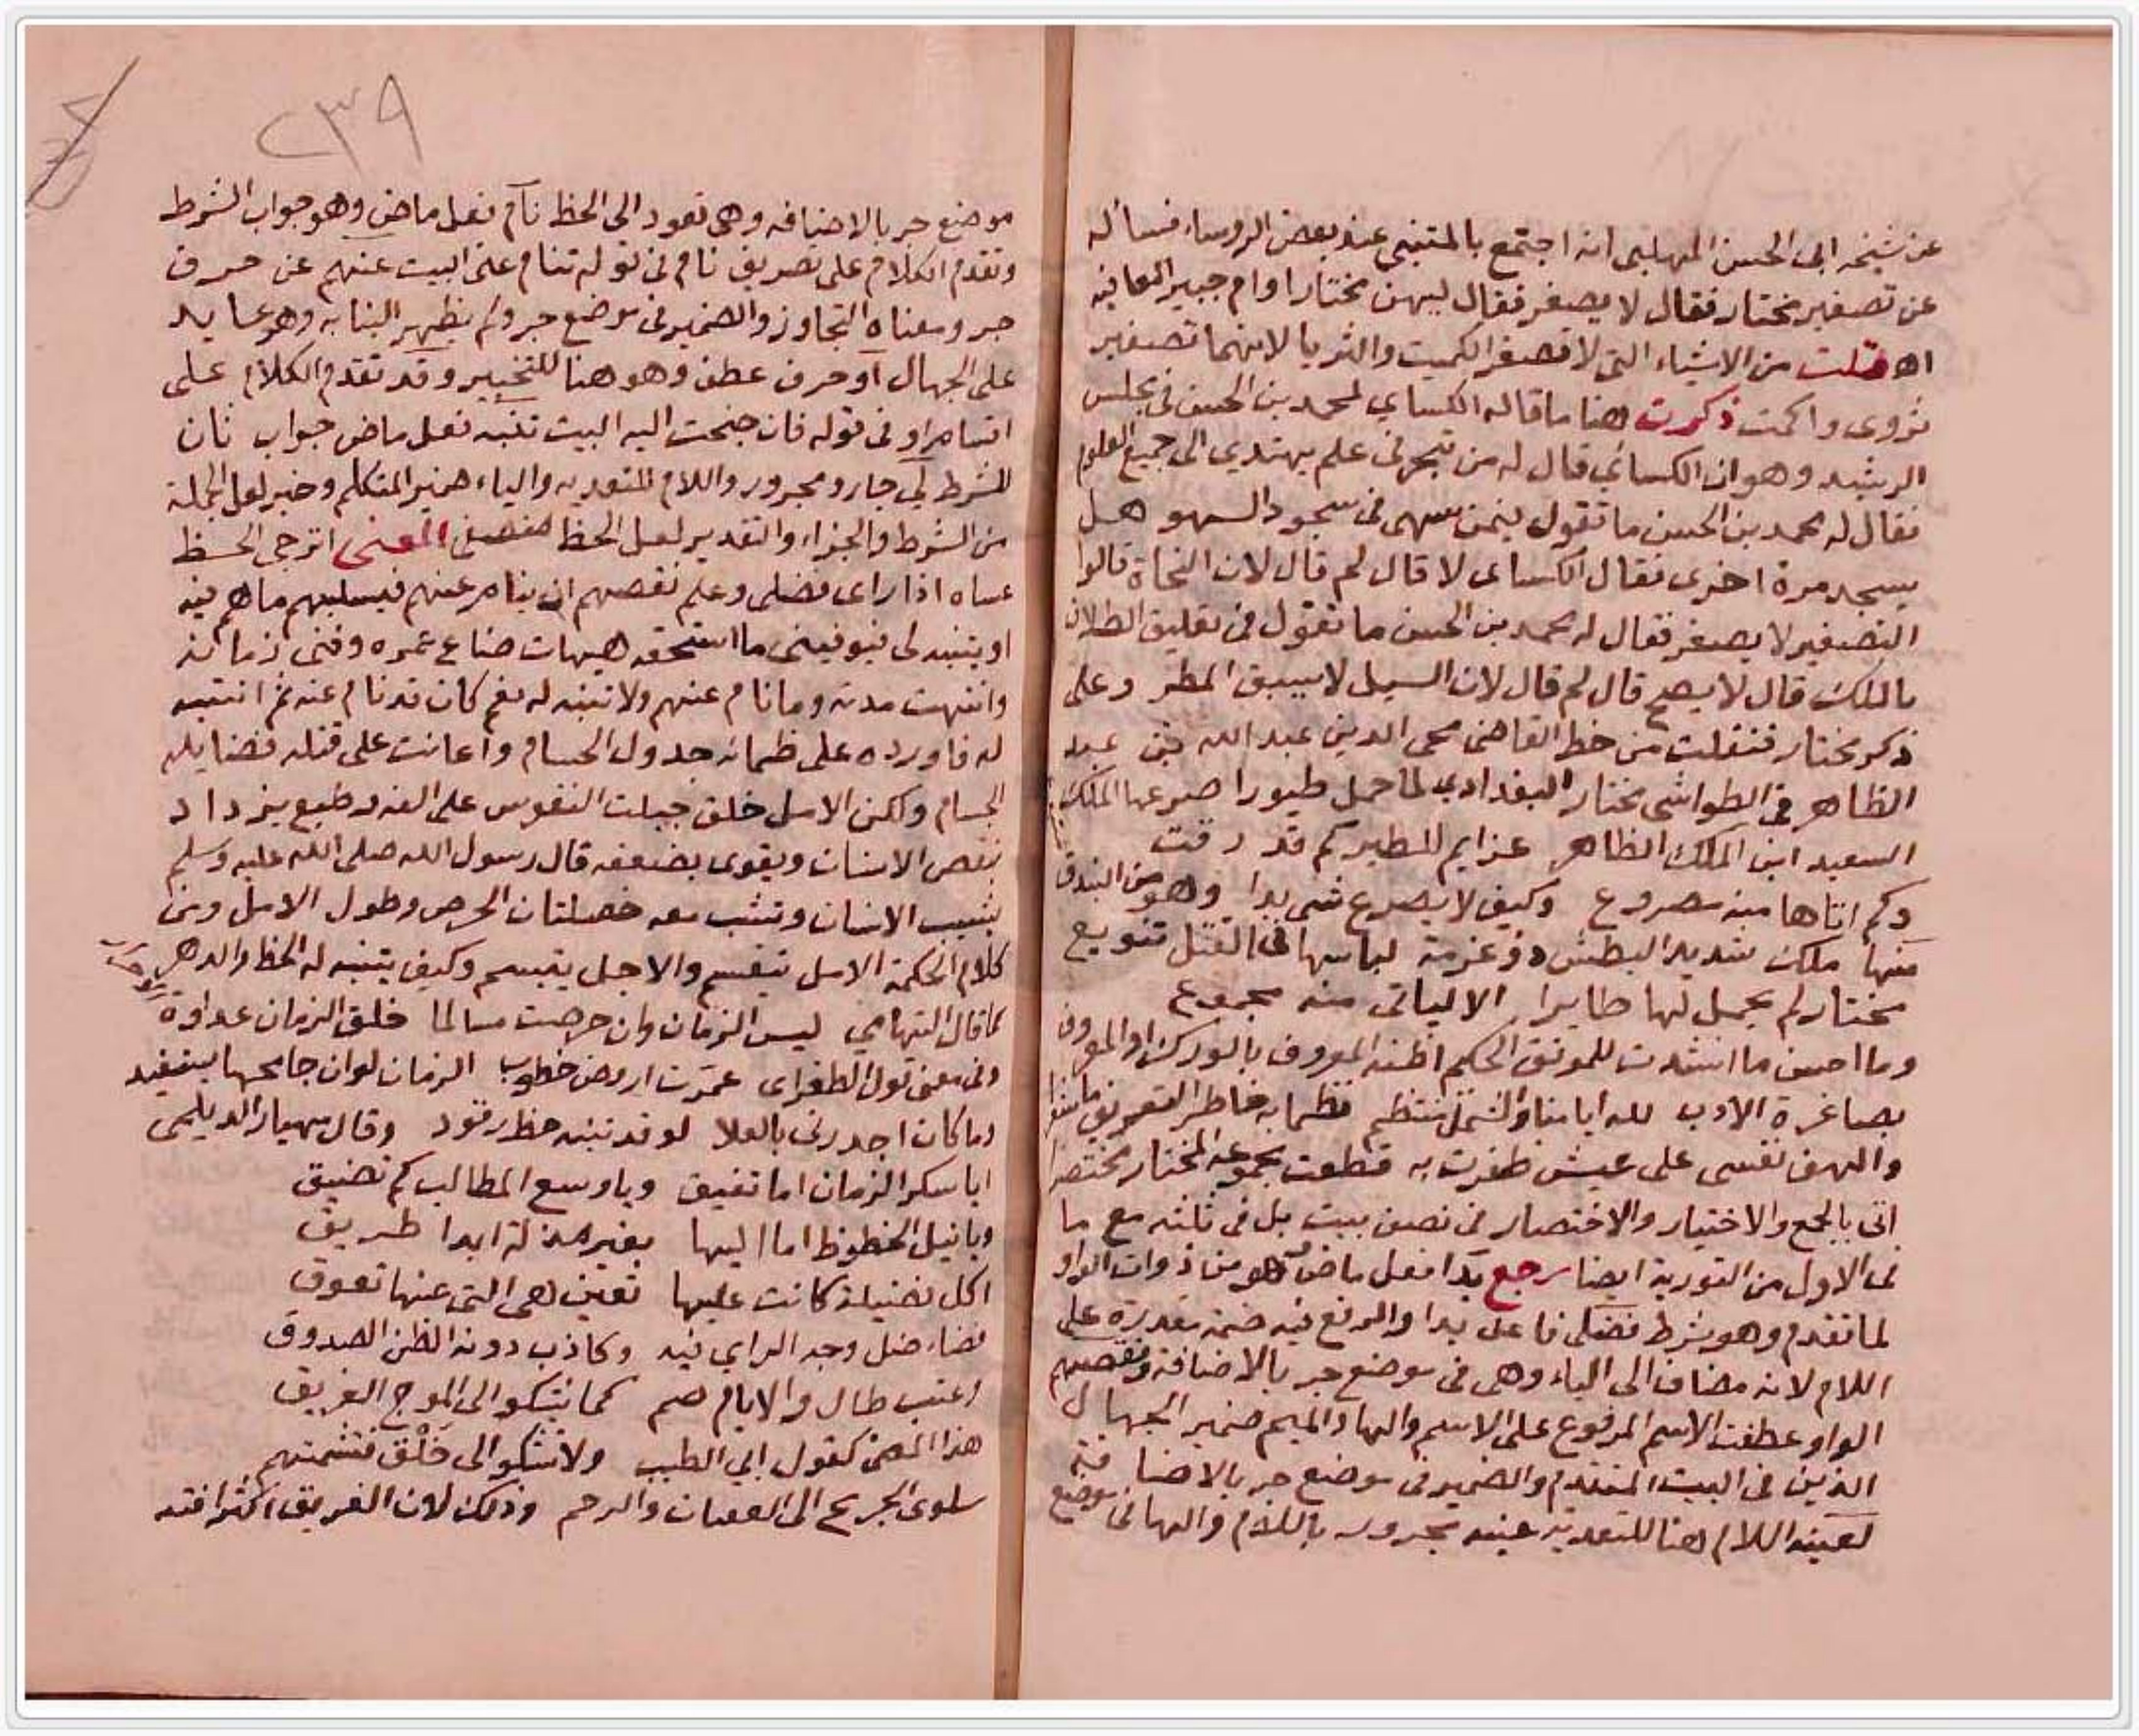 عن شيخه ابى الحسن المهلبى انه اجتمع بالمتنبى عند بعض الروساء فساله
عن تصغير مختار فقال لا يصغر فقال ليهن مختارا وام جبير المعافيه
اه قلت من الاشياء التى لا تصغر الكميت والثريا لانهما تصغير
ثروى واكمت ذكرت هنا ما قاله الكساي لمحمد بن الحسن فى مجلس
الرشيد وهو ان الكسائى قال له من تبحر فى علم يهتدي الى جميع العلوم
فقال له محمد بن الحسن ما تقول فيمن سهى فى سجود السهو هل
يسجد مرة اخرى فقال الكساى لا قال لم قال لان النحاة قالوا
التصغير لا يصغر فقال له محمد بن الحسن ما تقول فى تعليق الطلاق
بالملك قال لا يصح قال لم قال لان السيل لا يسبق المطر وعلى
ذكر مختار فنقلت من خط القاضى محى الدين عبد الله بن عبد
الظاهر فى الطواشى مختار البغدادي لما حمل طيورا صرعها الملك
السعيد ابن الملك الظاهر عزايم للطير كم قد رقت
وكم اتاها منه مصروع وكيف لا يصرع شى بدا وهو من البندق
منها ملك شديد البطش ذو عزمة لباسها فى القتل تنويع
مختار لم يحمل لها طايرا الا لياتى منه مجموع
وما احسن ما انشدت للموفق الحكيم اظنه المعروف بالوركن او المعروف
بصاغرة الادب لله ايامنا والشمل منتظم نظما به خاطر التفريق ما شعرا
والهف نفسى على عيش ظفرت به قطعت مجموعه المختار مختصرا
اتى بالجمع والاختيار والاختصار فى نصف بيت بل فى ثلثه مع ما
فى الاول من التورية ايضا رجع بدا فعل ماض وهو من ذوات الواو
لما تقدم وهو شرط فضلى فاعل بدا والرفع فيه ضمة مقدرة على
اللام لانه مضاف الى الياء وهى فى موضع جر بالاضافة ونقصهم
الواو عطفت الاسم المرفوع على الاسم والهاء والميم ضمير الجهال
الذين فى البيت المتقدم والضمير فى موضع جر بالاضافة
لعينه اللام هنا للتعدية عينه مجرور باللام والها فى موضع
٢٣٩
موضع جر بالاضافه وهى تعود الى الحظ نام فعل ماض وهو جواب الشرط
وتقدم الكلام على تصريف نام فى قوله تنام عنى البيت عنهم عن حرف
جر ومعناه التجاوز والضمير فى موضع جر ولم يظهر البنا به وهو عايد
على الجهال او حرف عطف وهو هنا للتخيير وقد تقدم الكلام على
اقسام او فى قوله فان جنحت اليه البيت تنبه فعل ماض جواب ثان
للشرط لى جار ومجرور واللام للتعديه والياء ضمير المتكلم وخبر لعل الجملة
من الشرط والجزاء والتقدير لعل الحظ المعنى اترجى الحظ
عساه اذا راى فضلى وعلم نقصهم ان ينام عنهم فيسلبهم ما هم فيه
او يتنبه لى فيوفينى ما استحقه هيهات ضاع عمره وفنى زمانه
وانتهت مدته وما نام عنهم ولا تنبه له نعم كان قد نام عنه ثم انتبه
له فاورده على ظمائه جدول الحسام واعانت على قتله فضايله
الجسام ولكن الامل خلق جبلت النفوس على الفه وطبع يزداد
بنقص الانسان ويقوى بضعفه قال رسول الله صلى الله عليه وسلم
يشيب الانسان وتشب معه خصلتان الحرص وطول الامل ومن
كلام الحكمة الامل يتقسم والاجل يتبسم وكيف يتنبه له الحظ والدهر
كما قال التهامي ليس الزمان وان حرصت مسالما خلق الزمان عداوة
وفى معنى قول الطغراى عمرت اروض خطوب الزمان لو ان جامحها يستفيد
وما كان اجدرنى بالعلا لو قد تنبه حظ رقود وقال مهيار الديلمى
ايا سكر الزمان اما تفيق ويا وسع المطالب كم تضيق
ويا نيل الحظوظ اما اليها بغير مذلة ابدا طريق
اكل فضيلة كانت عليها تعين هى التى عنها تعوق
قضاء ضل وجه الراى فيه وكاذب دونه الظن الصدوق
اعتب طال والايام صم كما يشكو الى الموج الغريق
هذا المعنى كقول ابى الطيب ولا تشكو الى خلق فتشمتهم
شكوى الجريح الى العقبان والرخم وذلك لان الغريق اكثر افته